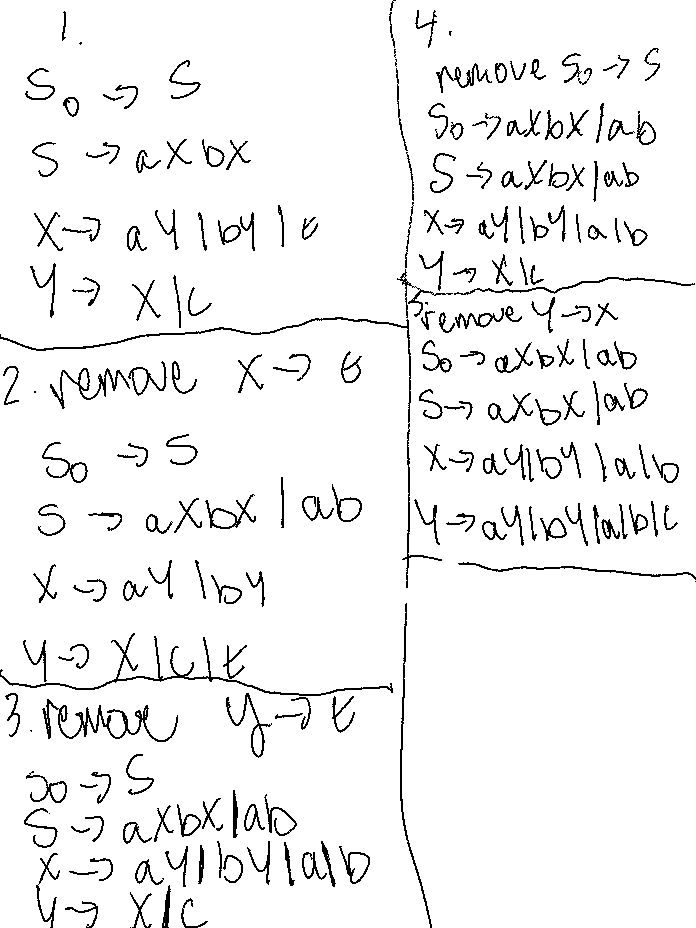 1.
S₀ → S
S → aXbX
X → aY|bY|ε
Y → X|c
2. remove X → ε
S₀ → S
S → aXbX|ab
X → aY|bY
Y → X|c|ε
3. remove Y → ε
S₀ → S
S → aXbX|ab
X → aY|bY|a|b
Y → X|c
4.
remove S₀ → S
S₀ → aXbX|ab
S → aXbX|ab
X → aY|bY|a|b
Y → X|c
5. remove Y → X
S₀ → aXbX|ab
S → aXbX|ab
X → aY|bY|a|b
Y → aY|bY|a|b|c